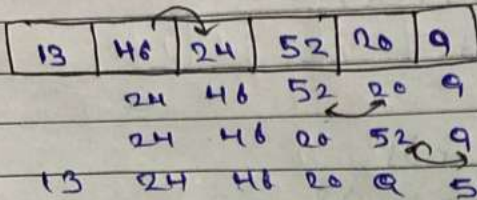 13 46 24 52 20 9
24 46 52 20 9
24 46 20 52 9
13 24 46 20 9 5